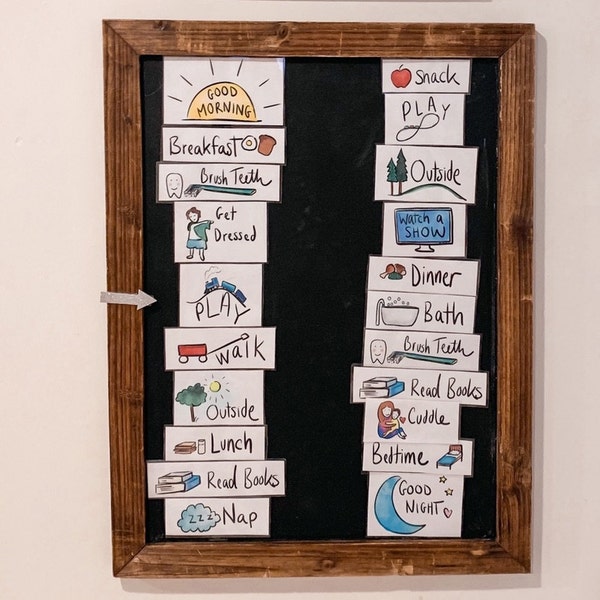 GOOD
MORNING
Breakfast
Brush Teeth
Get
Dressed
PLAY
walk
Outside
Lunch
Read Books
zzz Nap
Snack
PLAY
Outside
WATCH A
SHOW
Dinner
Bath
Brush Teeth
Read Books
Cuddle
Bedtime
GOOD
NIGHT